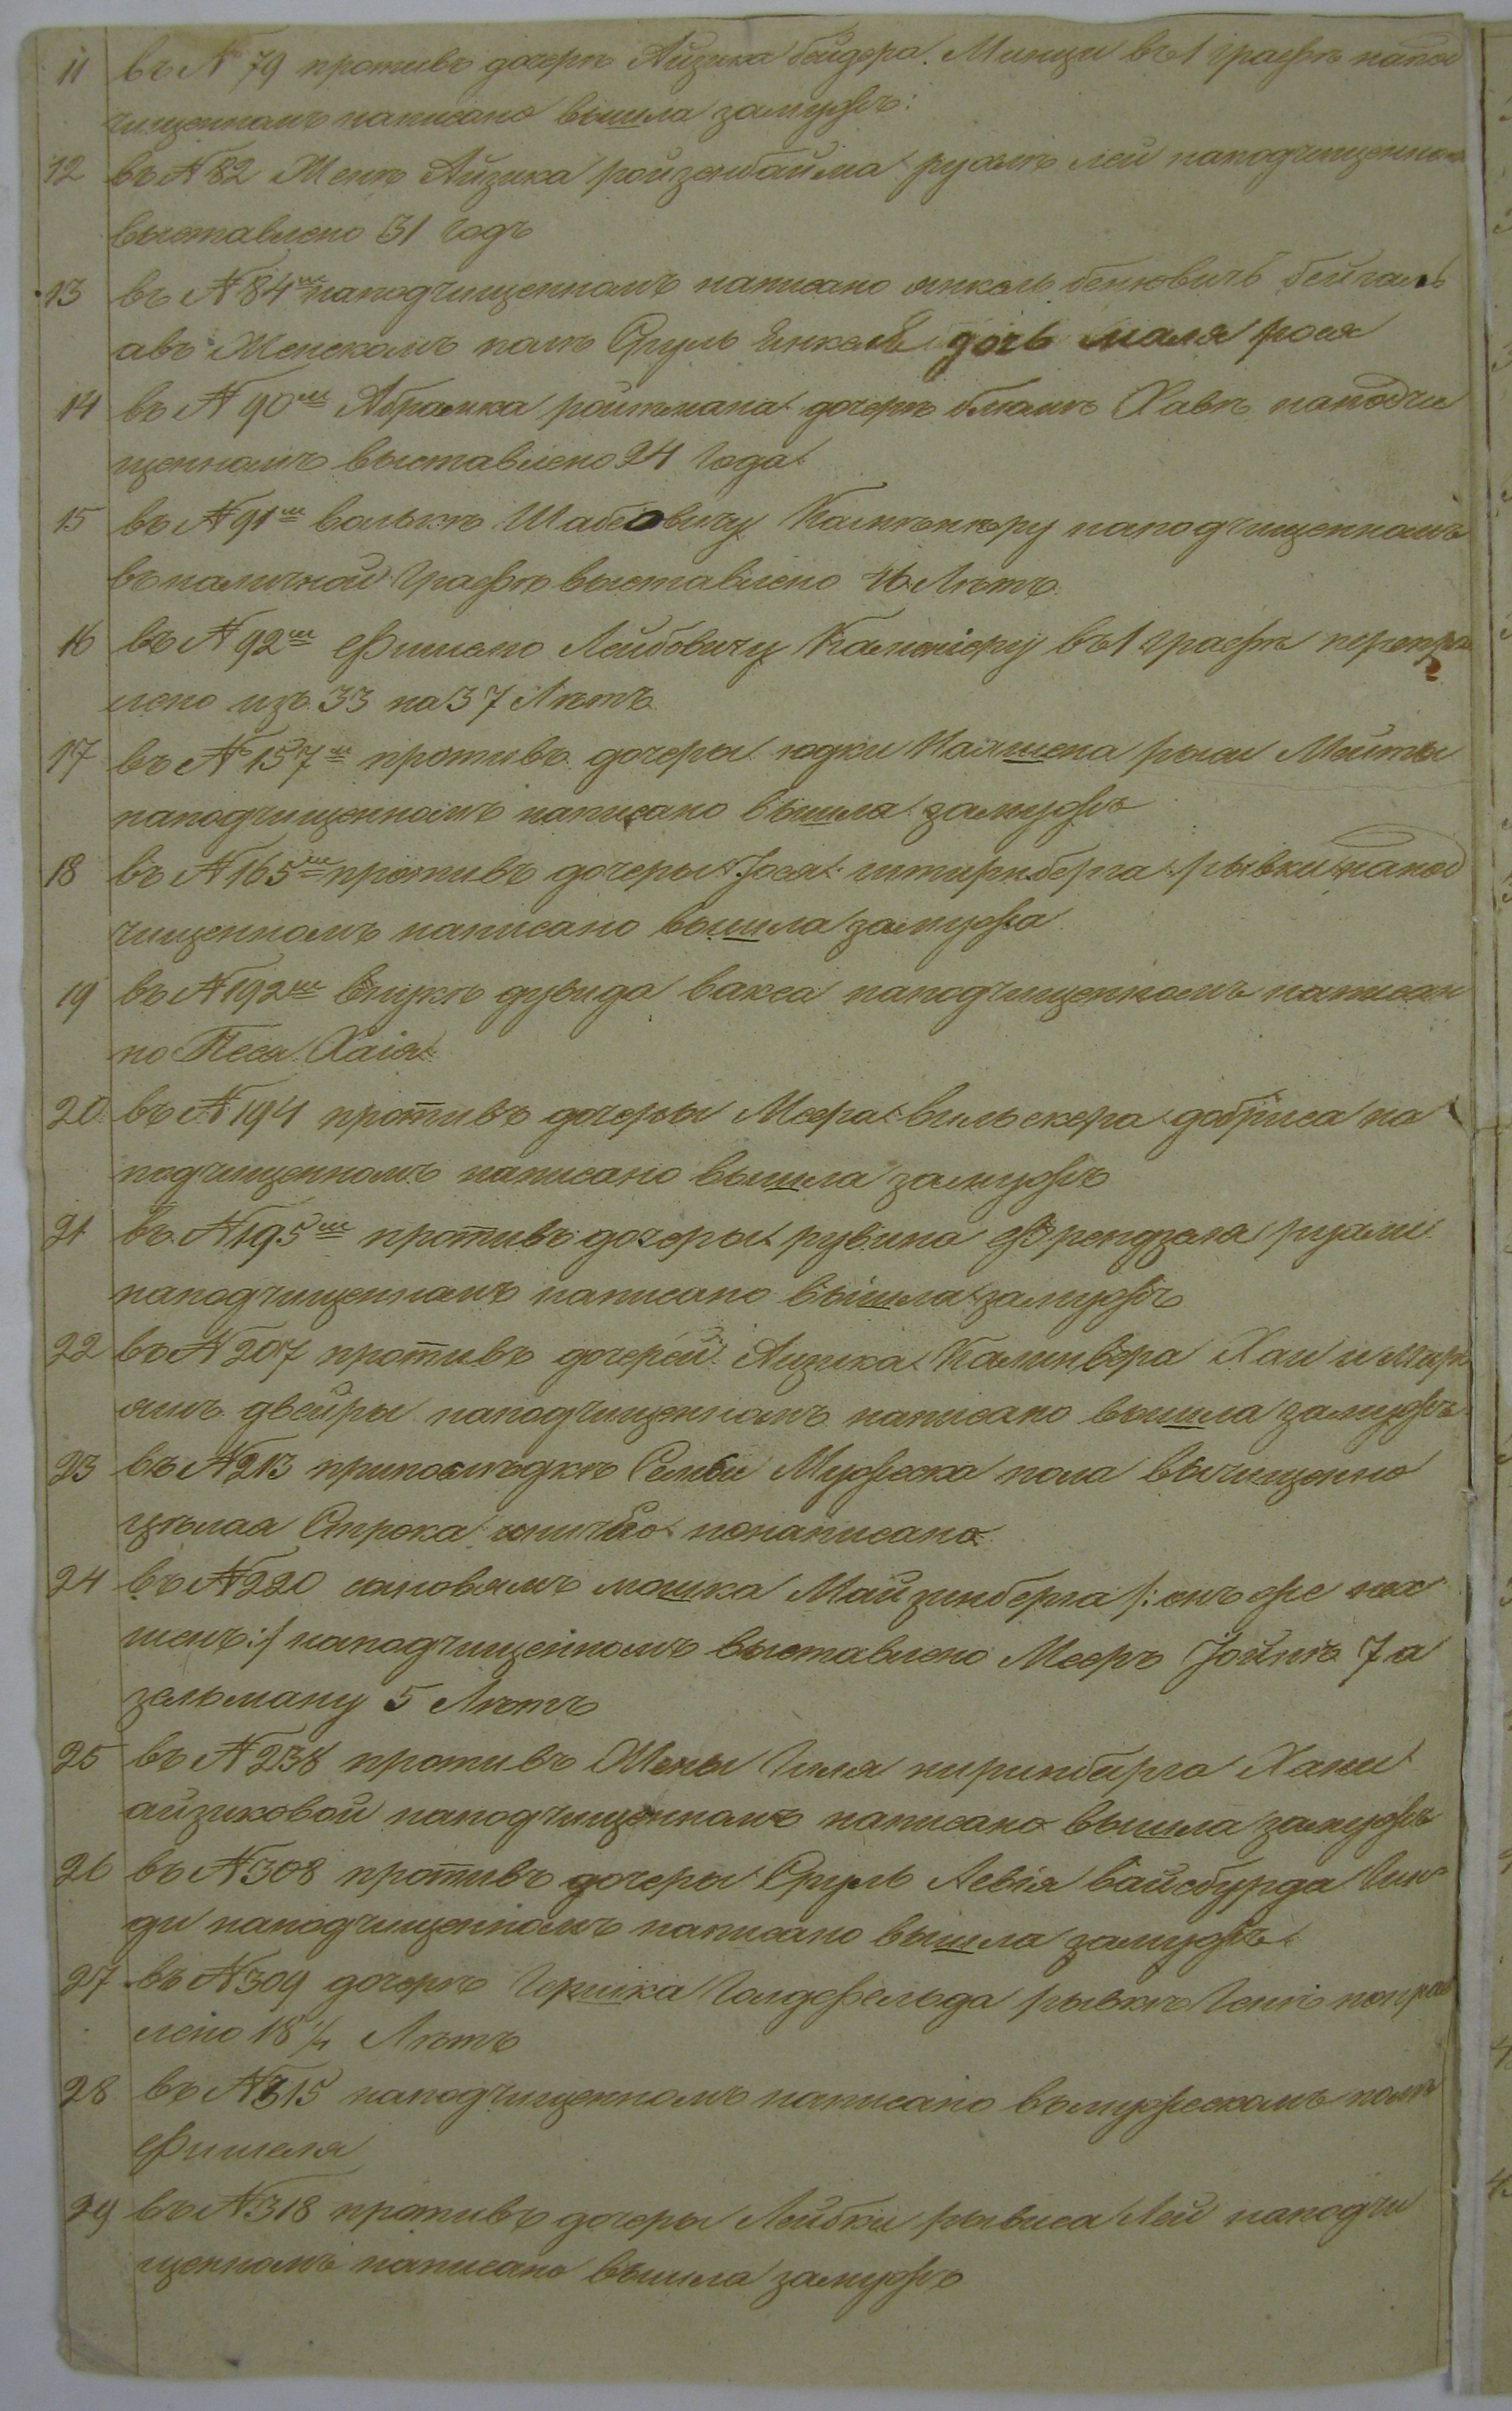 11 въ № 79 противъ дочеры Айзика бейдера Минци въ 1 графѣ напод
чищенномъ написано вышла замужъ:
12 въ № 82 Женѣ Айзика ройзенбайма рухлѣ леи наподчищенномъ
выставлено 31 годъ
13 въ № 84м наподчищенномъ написано янкель беньовичъ бейгель
авъ Женскомъ полѣ Сруль Янкель дочь маля рося
14 въ № 90м Абрамка ройтмана дочерѣ блюмѣ Хавѣ наподчи
щенномъ выставлено 24 года
15 въ № 91м волькѣ Шабсовичу наподчищенномъ
въ наличной графѣ выставлено 46 Лѣтъ
16 въ № 92м Фишелю Лейбовичу въ 1 графѣ
лено изъ 33 на 37 Лѣтъ
17 въ № 157м противъ дочеры юдки рыси Мейты
наподчищенномъ написано вышла замужъ
18 въ № 165м противъ дочеры Іося штеринберга рывки напод
чищенномъ написано вышла замужа
19 въ № 192м внукѣ дувида вакса наподчищенномъ написан
но Песя Хаія
20 въ № 194 противъ дочеры Меера вильскера добриса на
подчищенномъ написано вышла замужъ
21 въ № 195м противъ дочеры рувина Френдзеля рухли
наподчищенномъ написано вышла замужъ
22 въ № 207 противъ дочерей Аизика Хаи и Мар
ямъ двейры наподчищенномъ написано вышла замужъ
23 въ № 213 припослѣдкѣ Семьи Мужеска пола вычищенно
цѣлая Строка и ничего ненаписано
24 въ № 220 сыновямъ мошка Майзинберга /: онъ же
:/ наподчищенномъ выставлено Мееръ Іойнѣ 7 а
зельману 5 Лѣтъ
25 въ № 238 противъ Жены Гиля киринберга Ханы
айзиковой наподчищенномъ написано вышла замужъ
26 въ № 308 противъ дочеры Сруль Левія вайсбурда Гин
ди наподчищенномъ написано вышла замужъ
27 въ № 309 дочерѣ Гершка Голдефельда рывкѣ Генѣ поправ
лено 18 1/4 Лѣтъ
28 въ № 315 наподчищенномъ написано въ мужескомъ полѣ
Фишеля
29 въ № 318 противъ дочеры Лейбки рывиса Леи наподчи
щенномъ написано вышла замужъ